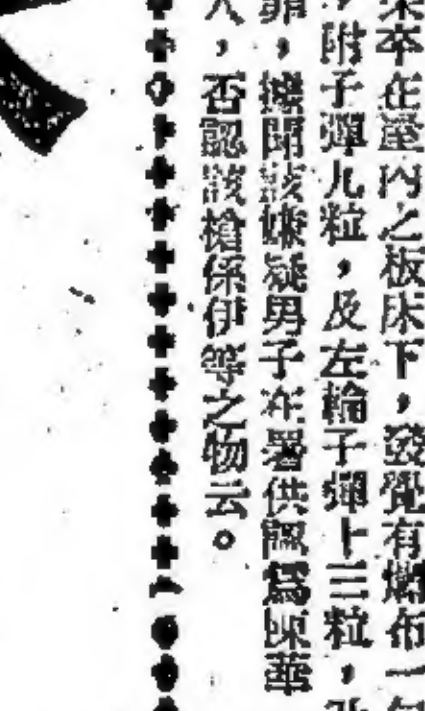 在屋內之板床下，發覺有爛布一
附子彈九粒，及左輪子彈十三粒，
，據聞該嫌疑男子在署供認爲陳華
人，否認該槍係伊等之物云。